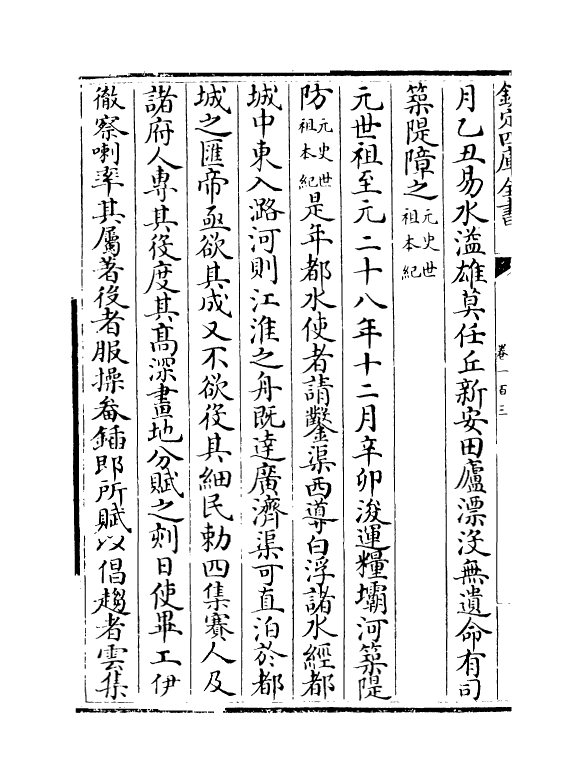 欽定四庫全書
卷一百三
月乙丑易水溢雄莫任丘新安田廬漂没無遺命有司
築隄障之元史世祖本紀
元世祖至元二十八年十二月辛卯浚運糧壩河築隄
防元史世祖本紀是年都水使者請鑿渠西導白浮諸水經都
城中東入潞河則江淮之舟既達廣濟渠可直泊於都
城之匯帝亟欲其成又不欲役其細民勅四集賽人及
諸府人專其役度其髙深畫地分賦之刻日使畢工伊
徹察喇率其屬著役者服操畚鍤即所賦以倡趨者雲集